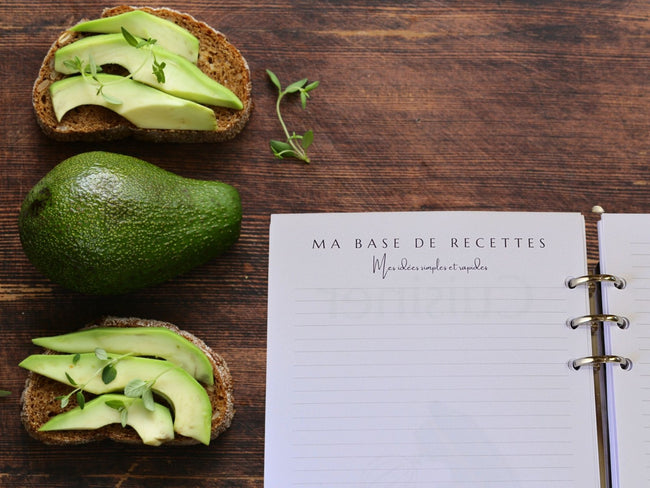 MA BASE DE RECETTES
Mes idées simples et rapides